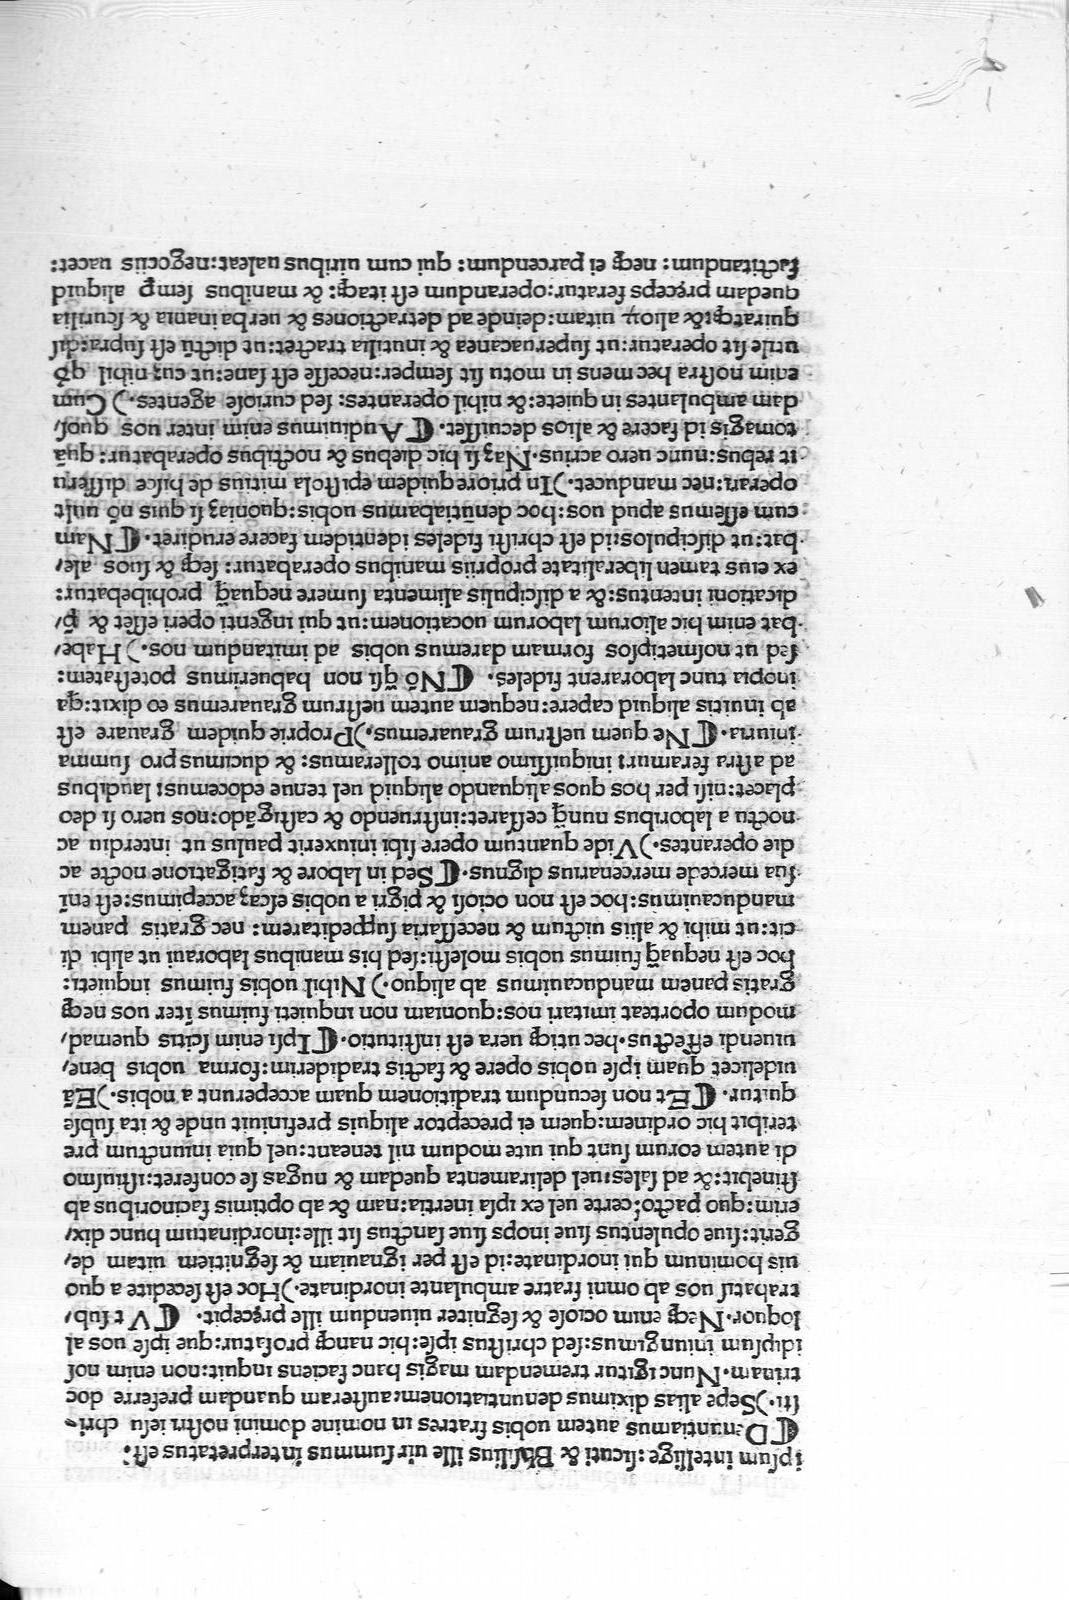 ipsum intellige: sicuti & Basilius ille uir summus interpretatus est.
⸿ Denūtiamus autem uobis fratres in nomine domini nostri iesu chri-
sti.) Sepe alias diximus denuntiationem: austeram quandam preferre doc
trinam. Nunc igitur tremendam magis hanc faciens inquit: non enim nos
idipsum iniungimus: sed christus ipse: hic nanq; profatur: que ipse uos al
loquor. Neq; enim ociose & segniter uiuendum ille pręcepit. ⸿ Vt sub/
trahatis uos ab omni fratre ambulante inordinate.) Hoc est secedite a quo
uis hominum qui inordinate: id est per ignauiam & segnitiem uitam de/
gerit: siue opulentus siue inops siue sanctus sit ille: inordinatum hunc dix/
erim: quo pacto: certe uel ex ipsa inertia: nam & ab optimis facinoribus ab
stinebit: & ad sales: uel deliramenta quedam & nugas se conferet: istiusmo
di autem eorum sunt qui uite modum nil teneant: uel quia iniunctum pre
teribit hic ordinem: quem ei preceptor aliquis prefiniuit unde & ita subse
quitur. ⸿ Et non secundum traditionem quam acceperunt a nobis.) Eā
uidelicet quam ipse uobis opere & factis tradiderim: forma uobis bene/
uiuendi effectus. hec utiq; uera est institutio. ⸿ Ipsi enim scitis quemad/
modum oporteat imitari nos: quoniam non inquieti fuimus iter uos neq;
gratis panem manducauimus ab aliquo.) Nihil uobis fuimus inquieti:
hoc est nequaq̃ fuimus uobis molesti: sed his manibus laboraui ut alibi di
cit: ut mihi & aliis uictum & necessaria suppeditatem: nec gratis panem
manducauimus: hoc est non ociosi & pigri a uobis escaȝ accepimus: est eni
sua mercede mercenarius dignus. ⸿ Sed in labore & fatigatione nocte ac
die operantes.) Vide quantum opere sibi iniuxerit paulus ut interdiu ac
noctu a laboribus nunq̃ cessaret: instruendo & castigādo: nos uero si deo
placet: nisi per hos quos aliquando aliquid uel tenue edocemus: laudibus
ad astra feramur: iniquissimo animo tolleramus: & ducimus pro summa
iniuria. ⸿ Ne quem uestrum grauaremus.) Proprie quidem grauare est
ab inuitis aliquid capere: nequem autem uestrum grauaremus eo dixit: qa
inopia tunc laborarent fideles. ⸿ Nō q̃si non habuerimus potestatem:
sed ut nosmetipsos formam daremus uobis ad imitandum nos.) Habe/
bat enim hic aliorum laborum uocationem: ut qui ingenti operi esset & p̄/
dicationi intentus: & a discipulis alimenta sumere nequaq̃ prohibebatur:
ex eius tamen liberalitate propriis manibus operabatur: seq; & suos ale/
bat: ut discipulos: id est christi fideles identidem facere erudiret. ⸿ Nam
cum essemus apud uos: hoc denūtiabamus uobis: quoniaȝ si quis nō uult
operari: nec manducet.) In priore quidem epistola mitius de hisce disseru
it rebus: nunc uero acrius. Naȝ si hic diebus & noctibus operabatur: quā
tomagis id facere & alios decuisset. ⸿ Audiuimus enim inter uos quos/
dam ambulantes in quiete: & nihil operantes: sed curiose agentes.) Cum
enim nostra hec mens in motu sit semper: necesse est sane: ut cuȝ nihil qď
utile sit operatur: ut superuacanea & inutilia tractet: ut dictū est supra:
quiratq; & alioꝝ uitam: deinde ad detractiones & uerba inania & scurrilia
quedam pręceps feratur: operandum est itaq;: & manibus semp aliquid
factitandum: neq; ei parcendum: qui cum uiribus ualeat: negociis uacet: